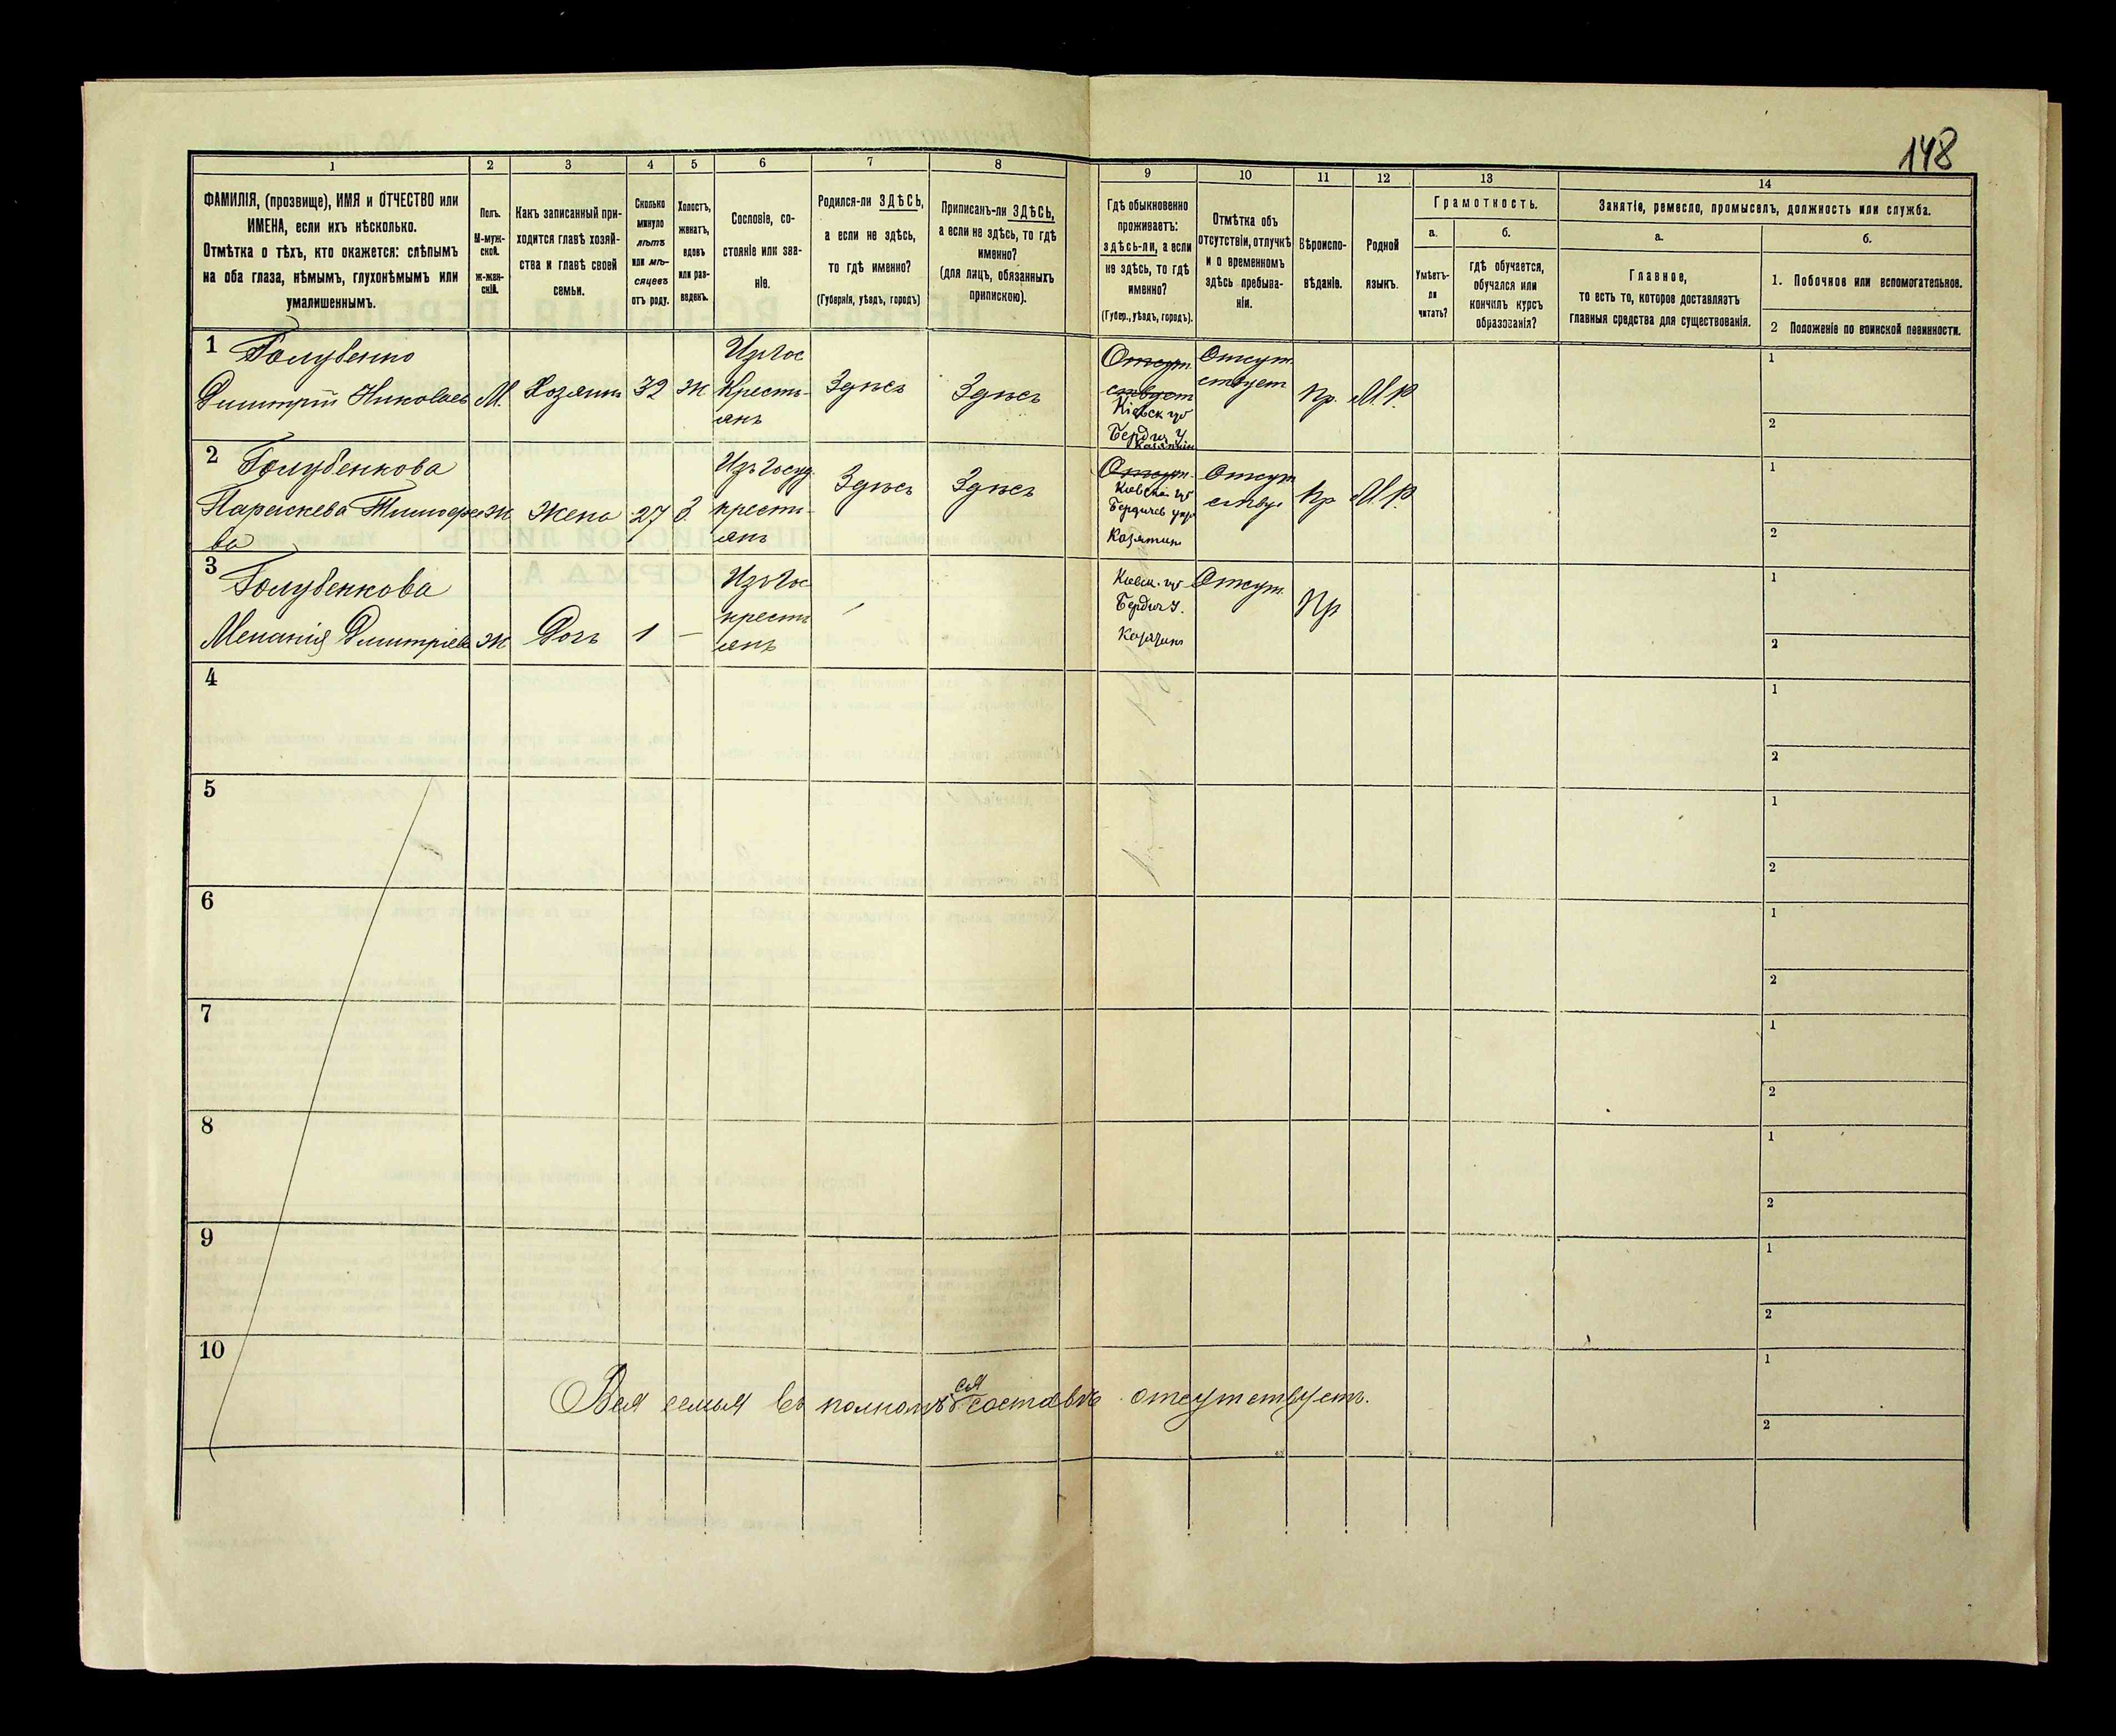 148
1
2
3
4
5
6
7
8
9
10
11
12
13
14
ФАМИЛІЯ, (прозвище), ИМЯ и ОТЧЕСТВО или
ИМЕНА, если ихъ нѣсколько.
Отмѣтка о тѣхъ, кто окажется: слѣпымъ
на оба глаза, нѣмымъ, глухонѣмымъ или
умалишеннымъ.
Полъ.
М-муж-
ской.
ж-жен-
скій.
Какъ записанный при-
ходится главѣ хозяй-
ства и главѣ своей
семьи.
Сколько
минуло
лѣтъ
или мѣ-
сяцевъ
отъ роду.
Холостъ,
женатъ,
вдовъ
или раз-
веденъ.
Сословіе, со-
стояніе или зва-
ніе.
Родился-ли ЗДѢСЬ,
а если не здѣсь,
то гдѣ именно?
(Губернія, уѣздъ, городъ)
Приписанъ-ли ЗДѢСЬ,
а если не здѣсь, то гдѣ
именно?
(для лицъ, обязанныхъ
припискою).
Гдѣ обыкновенно
проживаетъ:
здѣсь-ли, а если
не здѣсь, то гдѣ
именно?
(Губер., уѣздъ, городъ).
Отмѣтка объ
отсутствіи, отлучкѣ
и о временномъ
здѣсь пребыва-
ніи.
Вѣроиспо-
вѣданіе.
Родной
языкъ.
Грамотность.
а.
Умѣетъ-
ли
читать?
б.
гдѣ обучается,
обучался или
кончилъ курсъ
образованія?
Занятіе, ремесло, промыселъ, должность или служба.
а.
Главное,
то есть то, которое доставляетъ
главныя средства для существованія.
б.
1. Побочное или вспомогательное.
2 Положеніе по воинской повинности.
1 Голубенко
Димитрій Николаев М. Хозяинъ 32 ж.
Изъ Гос
Крестъ-
янъ
Здѣсь Здѣсь
Отсут
ствует
Кіевск губ
Бердич у.
Казятин
Отсут
ствует
Пр. М.Р.
1
2
2 Голубенкова
Параскева Тимофее
ва
ж Жена 27 З.
Изъ Госуд
крестъ-
янъ
Здѣсь Здѣсь
Отсут.
Кіевской губ
Бердичев уезд
Козятин
Отсут
ствуе
Пр М.Р.
1
2
3 Голубенкова
Меланія Дмитріева ж Дочь 1 —
Изъ Гос
крестъ
янъ
Кіевск. губ
Бердич у.
Козятин
Отсут.
Пр
1
2
4
1
2
5
1
2
6
1
2
7
1
2
8
1
2
9
1
2
10
1
2
Вся семья въ полномъ ея составѣ отсутствуетъ.